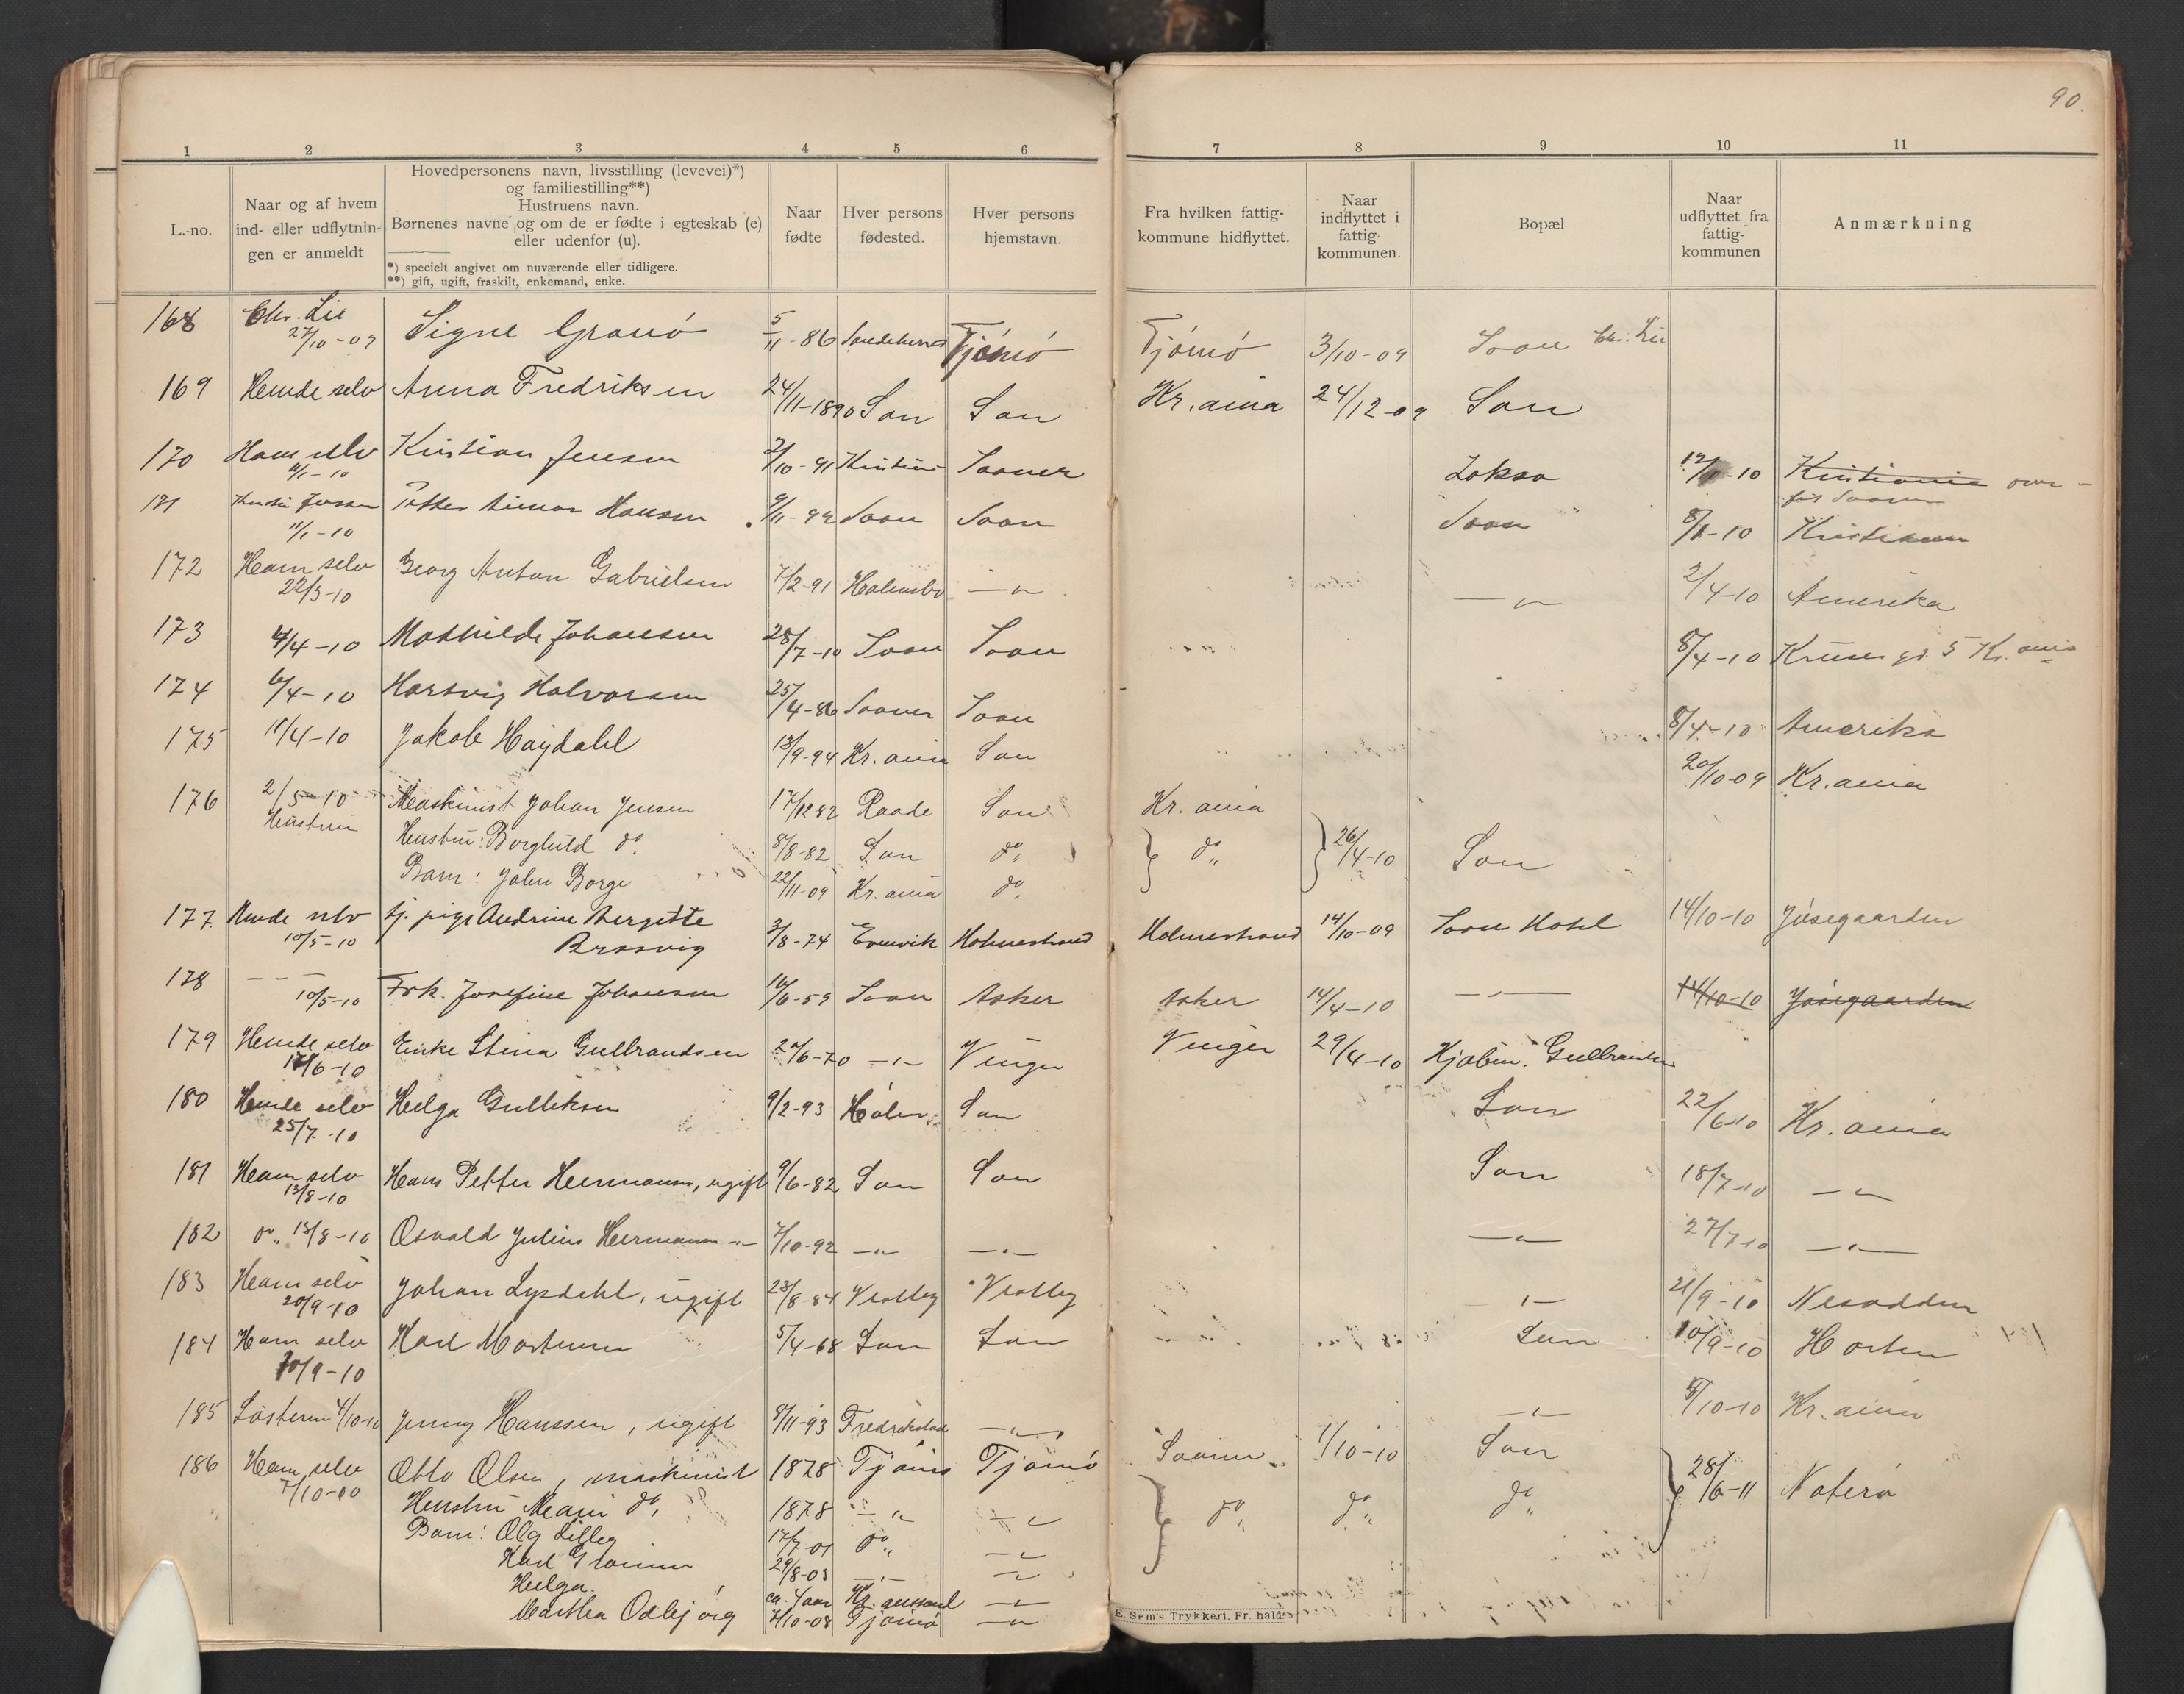 90.
1 2 3 4 5 6 7 8 9 10 11
L.-no.
Naar og af hvem
ind- eller udflytnin-
gen er anmeldt
Hovedpersonens navn, livsstilling (levevei)*)
og familiestilling**)
Hustruens navn.
Børnenes navne og om de er fødte i egteskab (e)
eller udenfor (u).
*) specielt angivet om nuværende eller tidligere.
**) gift, ugift, fraskilt, enkemand, enke.
Naar
fødte
Hver persons
fødested.
Hver persons
hjemstavn.
Fra hvilken fattig-
kommune hidflyttet.
Naar
indflyttet i
fattig-
kommunen.
Bopæl
Naar
udflyttet fra
fattig-
kommunen
Anmærkning
168 Chr. Lie Signe Granö 5/11-86 Tjömö Tjömö 3/10-09 Soon Chr. Lie
27/10-09
169 Hende selv Anna Fredriksen 24/11-1890 Son Son Kr.ania 24/12-09 Son
170 Ham selv Kristian Jensen 2/10-91 Sooner Lokso 12/1-10 Kristiania
11/1-10
171 Hansen 9/11-99 Soon Soon Soon 8/1-10 Kristiania
11/1-10
172 Ham selv Georg Anton Gabrielsen 7/2-91 Holmsbo —"— —"— 2/4-10 Amerika
22/3-10
173 4/4-10 Mathilde Johansen 28/7-10 Soon Soon 8/4-10 Kruses gt. 5 Kr.ania
174 6/4-10 Halvorsen 25/4-86 Sooner Soon 8/4-10 Amerika
175 11/4-10 Jakob Høydahl 13/9-94 Kr.ania Son 20/10-09 Kr.ania
176 2/5-10 Maskinist Johan Jensen 17/12 82 Raade Son Kr.ania
Hustru Hustru: Borghild do. 8/8-82 Son do. do. 26/4-10 Son
Barn: John Borge 22/11-09 Kr.ania do.
177. Hende selv tj. pige Andrine Bergitte
10/5-10 2/8-74 Holmestrand Holmestrand 14/10-09 Soon Hotel 14/10-10
178 — — Frk. Josefine Johansen 16/6-59 Soon Asker Asker 14/4-10 —"— 14/10-10
10/5-10
179 Hende selv Enke Stina Gulbrandsen 27/6-70 —"— Vinger Vinger 29/4-10 Kjøbm. Gulbrandsen
17/6-10
180 Hende selv Helga Gulliksen 9/2-93 Son Son 22/6-10 Kr.ania
25/7-10
181 Ham selv Hans Petter Hermansen, ugift 9/6-82 Son Son Son 18/7-10 —"—
13/8-10
182 do. 13/8-10 Osvald Julius Hermansen —"— 7/10-92 —"— —"— —"— 27/7-10 —"—
183 Ham selv Johan Lysdahl, ugift 23/8-84 Vestby Vestby —"— 21/9-10 Nesodden
20/9-10
184 Ham selv Karl Mortensen 5/4-68 Son Son Son 10/9-10 Horten
10/9-10
185 Søsteren 4/10-10 Jenny Hanssen, ugift 8/11-93 Fredrikstad —"— —"— 5/10-10 Kr.ania
186 Ham selv Otto Olsen, maskinist 1878 Tjømø Tjømø Sooner 1/10-10 Son
7/10-10
Hustru Marie do. 1878 —"— —"— do. do. do. 28/6-11 Nøterø
Barn: 17/7-01 do. —"—
Karl 29/8-03 —"— —"—
Helga. ca. 4 aar Kr.anssand —"—
Martha Odbjørg 7/10-08 Tjømø —"—
E. Sem's Trykkeri, Fr.hald.